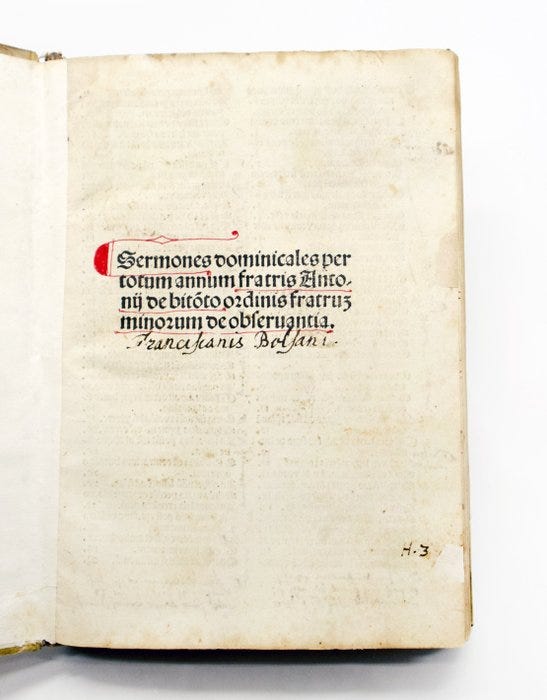 Sermones dominicales per
totum annum fratris Anto-
nij de bitõto ordinis fratruꝫ
minorum de obseruantia.
Franciscanis Bolsani.
H. 3